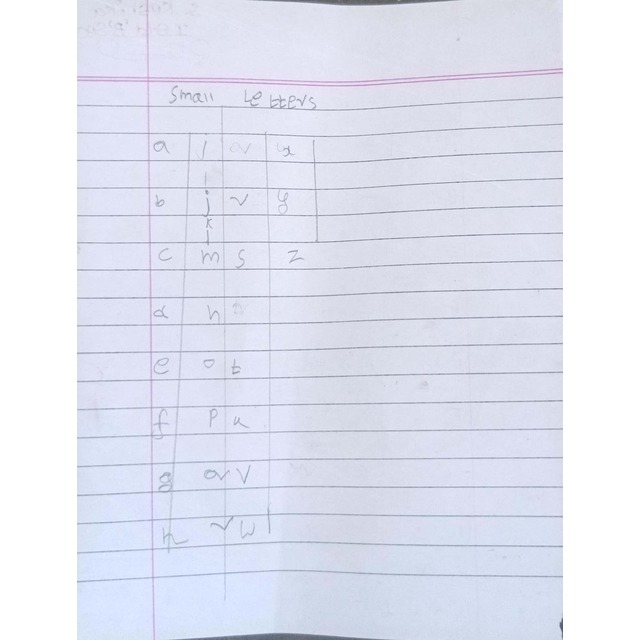 Small Letters
a i x
b j r y
k
l
c m s z
d n
e o t
f p u
g q v
h r w